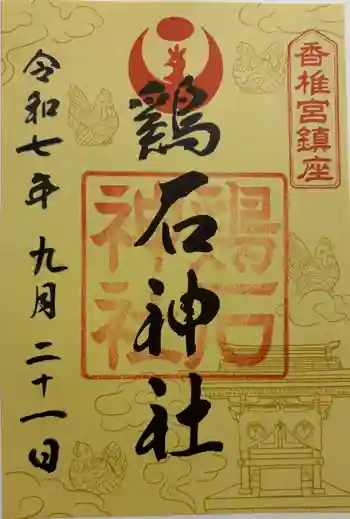 香椎宮鎮座
鷄石神社
鶏石
神社
令和七年 九月 二十一日